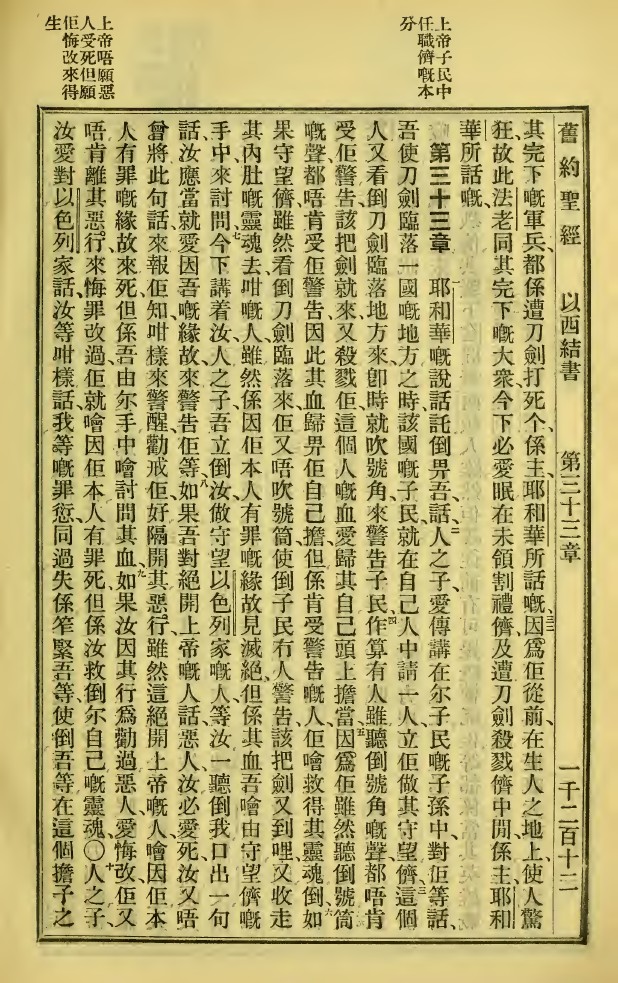 上帝子民中
任職儕嘅本
分
上帝唔願惡
人受死但願
佢悔改來得
生
舊約聖經 以西結書 第三十三章 一千二百十三
其完下嘅軍兵、都係遭刀劍打死个、係主耶和華所話嘅、三二因爲佢從前在生人之地上、使人驚
狂、故此法老同其完下嘅大衆、今下必愛眠在未領割禮儕、及遭刀劍殺戮儕中間、係主耶和
華所話嘅、
第三十三章 一耶和華嘅說話託倒畀吾、話、二人之子、愛傳講在尔子民嘅子孫中、對佢等話、
吾使刀劍臨落一國嘅地方之時、該國嘅子民、就在自己人中請一人、立佢做其守望儕、三這個
人又看倒刀劍臨落地方來、卽時就吹號角來警告子民、四作算有人雖聽倒號角嘅聲、都唔肯
受佢警告、該把劍就來、又殺戮佢、這個人嘅血愛歸其自己頭上擔當、五因爲佢雖然聽倒號筒
嘅聲、都唔肯受佢警告、因此其血歸畀佢自己擔、但係肯受警告嘅人、佢噲救得其靈魂倒、六如
果守望儕雖然看倒刀劍臨落來、佢又唔吹號筒、使倒子民冇人警告、該把劍又到哩、又收走
其內肚嘅靈魂去、咁嘅人雖然係因佢本人有罪嘅緣故見滅絕、但係其血吾噲由守望儕嘅
手中來討問、七今下講着汝、人之子、吾立倒汝做守望以色列家嘅人等、汝一聽倒我口出一句
話、汝應當就愛因吾嘅緣故、來警告佢等、八如果吾對絕開上帝嘅人話、惡人、汝必愛死、汝又唔
曾將此句話來報佢知、咁樣來警醒勸戒佢、好隔開其惡行、雖然這絕開上帝嘅人、噲因佢本
人有罪嘅緣故來死、但係吾由尔手中噲討問其血、九如果汝因其行爲勸過惡人、愛悔改、佢又
唔肯離其惡行、來悔罪改過、佢就噲因佢本人有罪死、但係汝救倒尔自己嘅靈魂、〇十人之子、
汝愛對以色列家話、汝等咁樣話、我等嘅罪愆同過失、係笮緊吾等、使倒吾等在這個擔子之